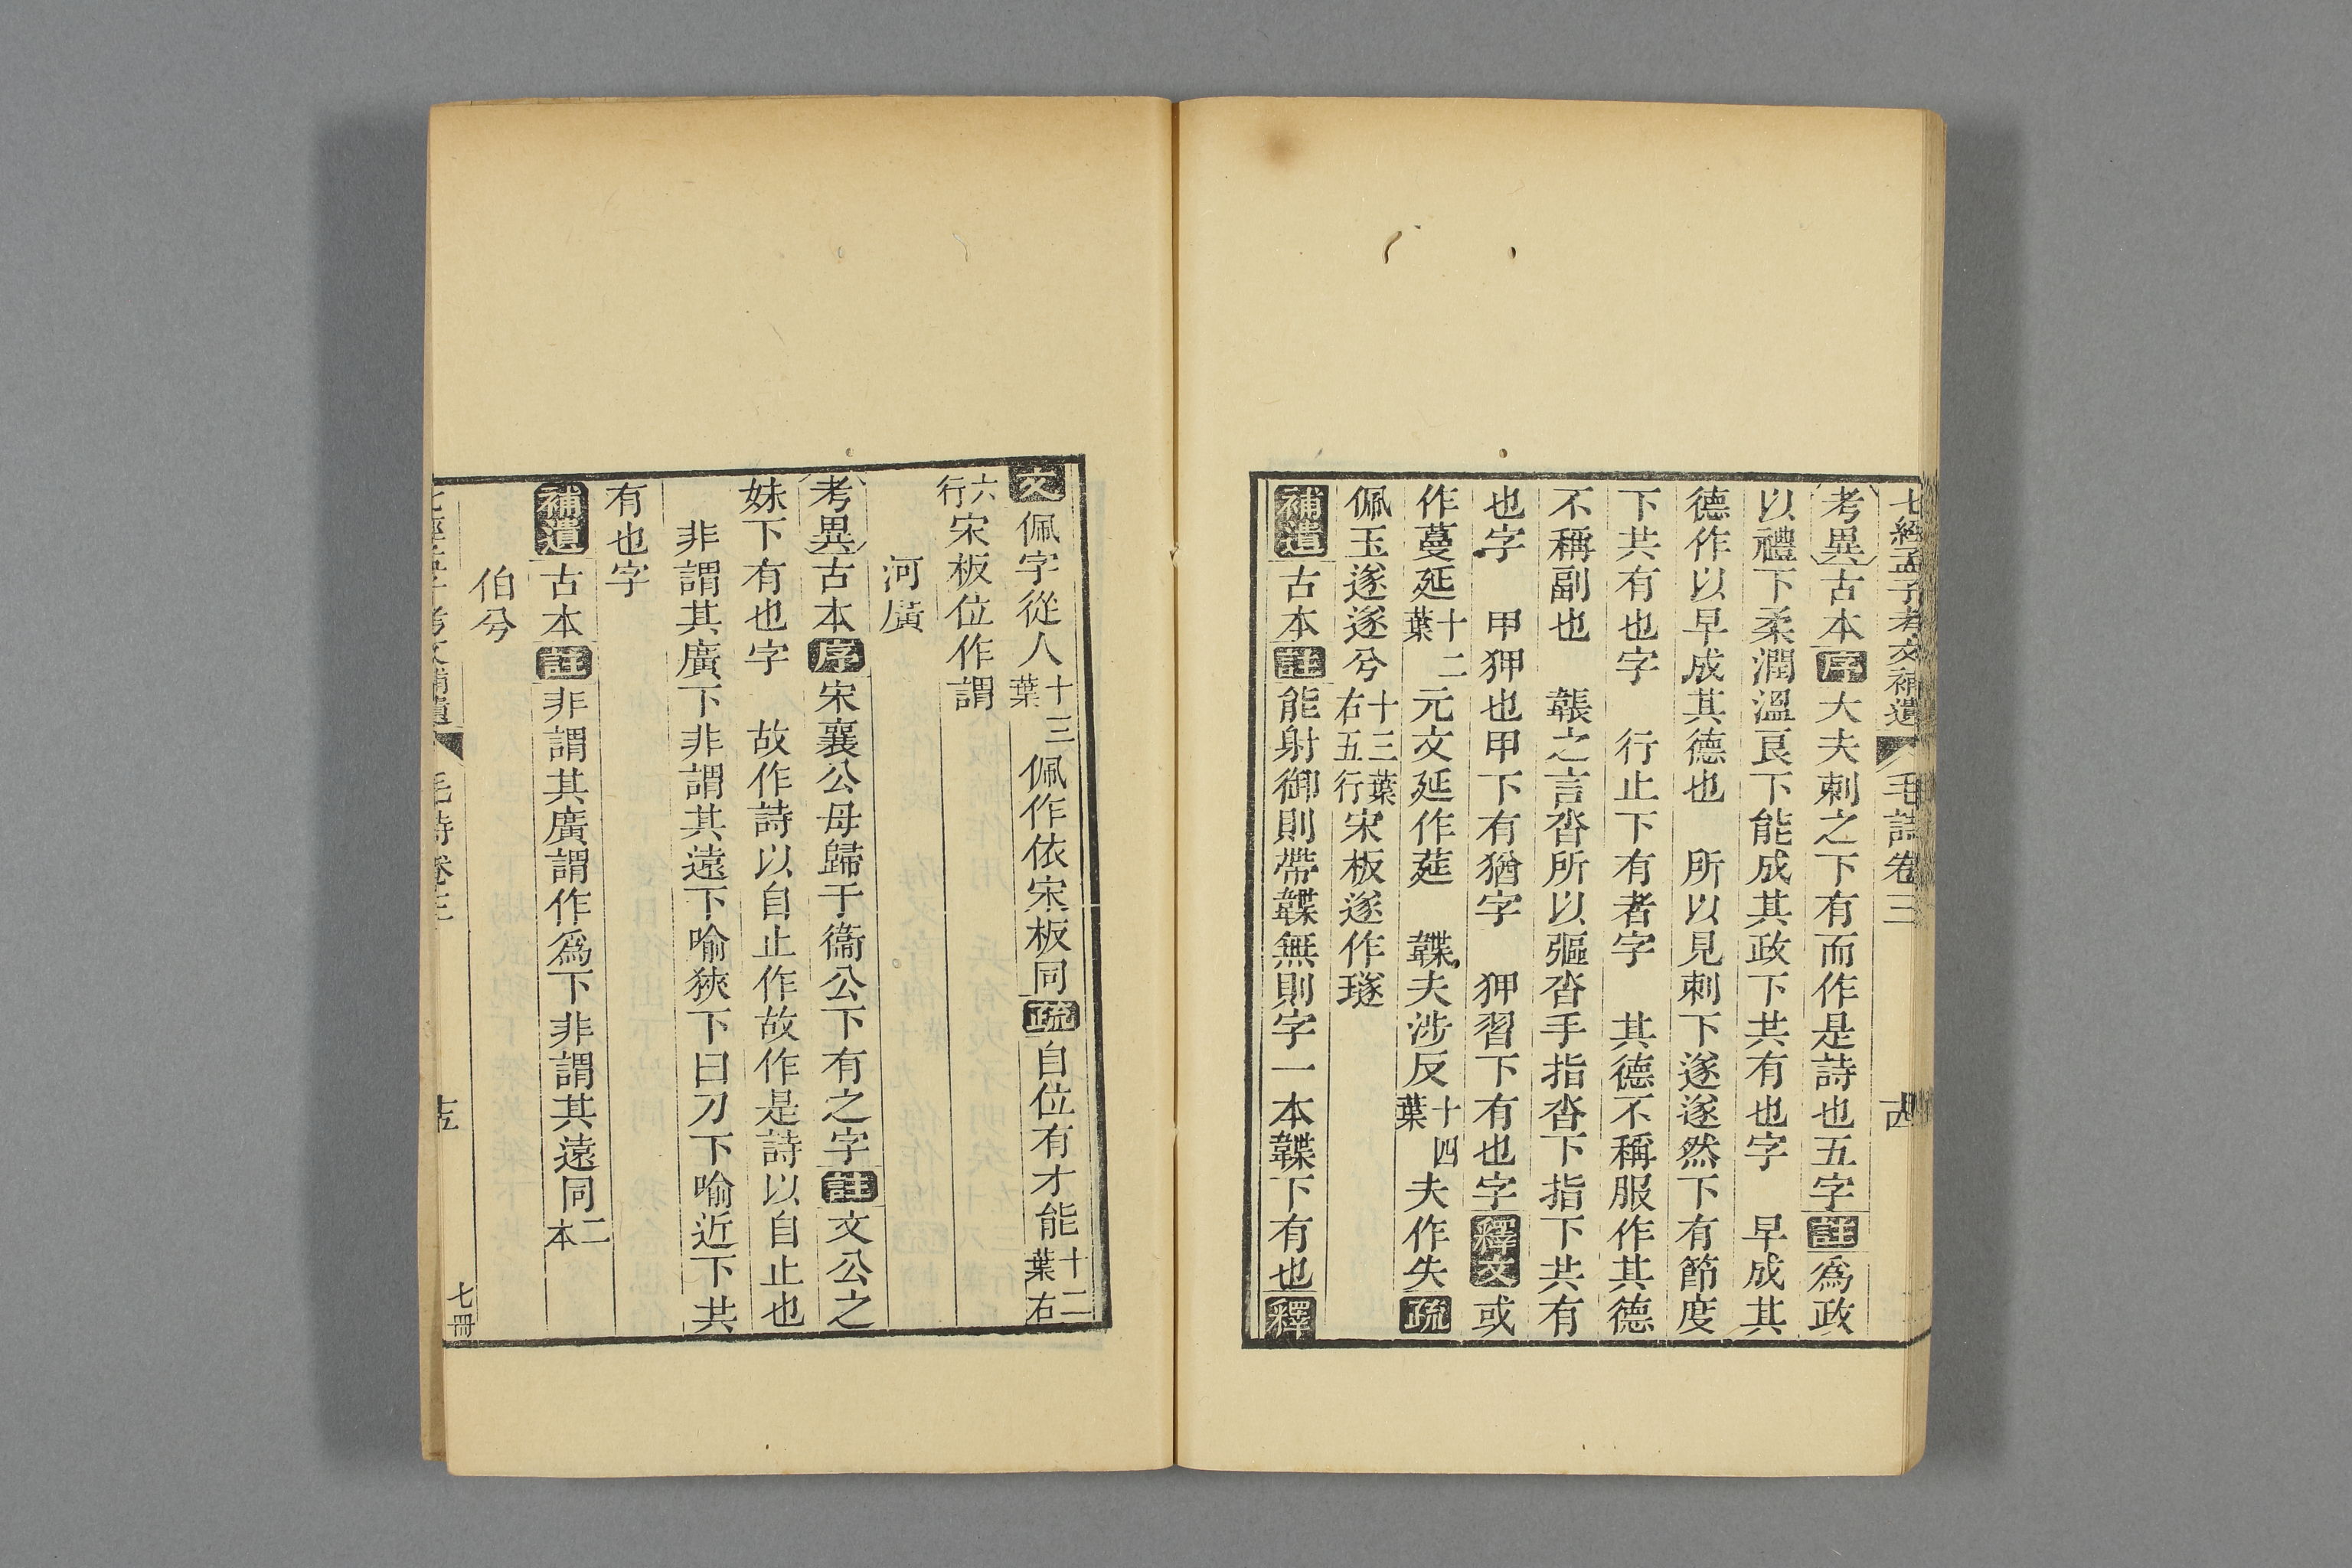 七經孟子考文補遺 毛詩卷三 十四
考異古本序大夫刺之下有而作是詩也五字註爲政
以禮下柔潤溫良下能成其政下共有也字 早成其
德作以早成其德也 所以見刺下遂遂然下有節度
下共有也字 行止下有者字 其德不稱服作其德
不稱副也 韔之言沓所以彄沓手指沓下指下共有
也字 甲狎也甲下有猶字 狎習下有也字釋文或
作蔓延十二葉元文延作莚 韘夫涉反十四葉夫作失疏
佩玉遂遂兮十三葉右五行宋板遂作璲
補遺古本註能射御則帶韘無則字一本韘下有也釋
文佩字從人十三葉佩作依宋板同疏自位有才能十二葉右
六行宋板位作謂
河廣
考異古本序宋襄公母歸于衞公下有之字註文公之
妹下有也字 故作詩以自止作故作是詩以自止也
非謂其廣下非謂其遠下喻狹下曰刀下喻近下共
有也字
補遺古本註非謂其廣謂作爲下非謂其遠同二本
伯兮
七經孟子考文補遺 毛詩卷三 十五 七冊